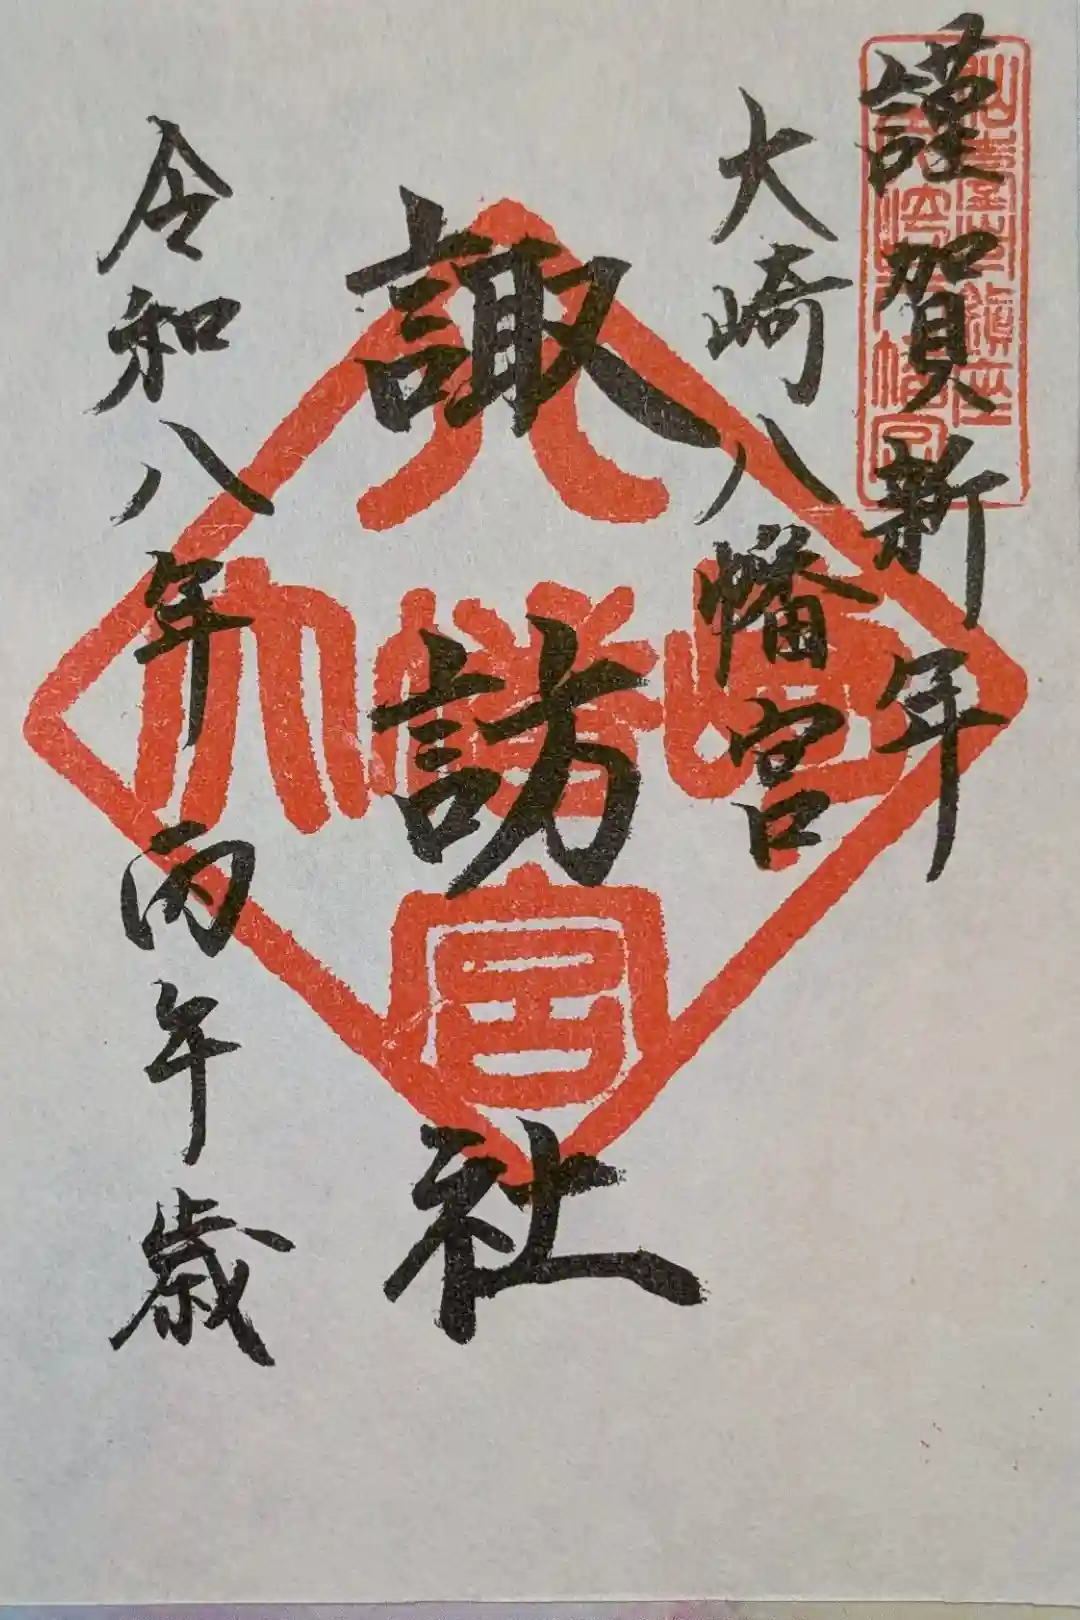 謹賀新年
大崎八幡宮
諏訪社
令和八年丙午歳
八幡宮
大崎